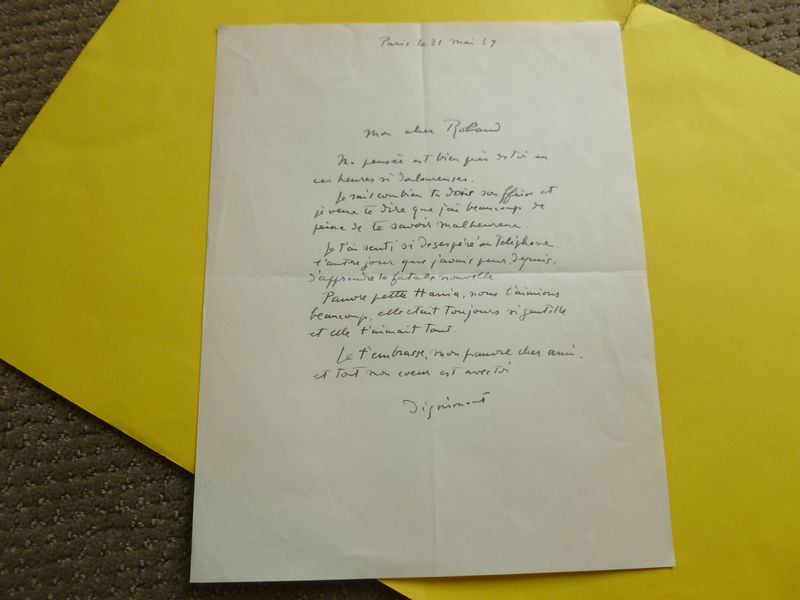 Paris le 21 mai 59
Mon cher Roland
Ma pensée est bien près de toi en
ces heures si douloureuses.
Je sais combien tu dois souffrir et
je veux te dire que j'ai beaucoup de
peine de te savoir malheureux.
Je t'ai senti si désespéré au téléphone
l'autre jour que j'avais peur, depuis,
d'apprendre la fatale nouvelle
Pauvre petite Hania, nous l'aimions
beaucoup, elle était toujours si gentille
et elle t'aimait tant.
Je t'embrasse, mon pauvre cher ami,
et tout mon coeur est avec toi
Dignimont